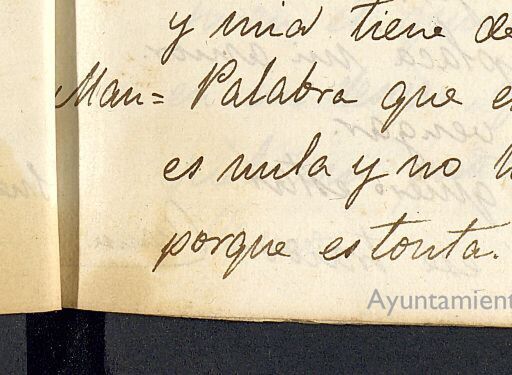 y mia tiene de
Man= Palabra que e
es nula y no
porque es tonta.
Ayuntamient